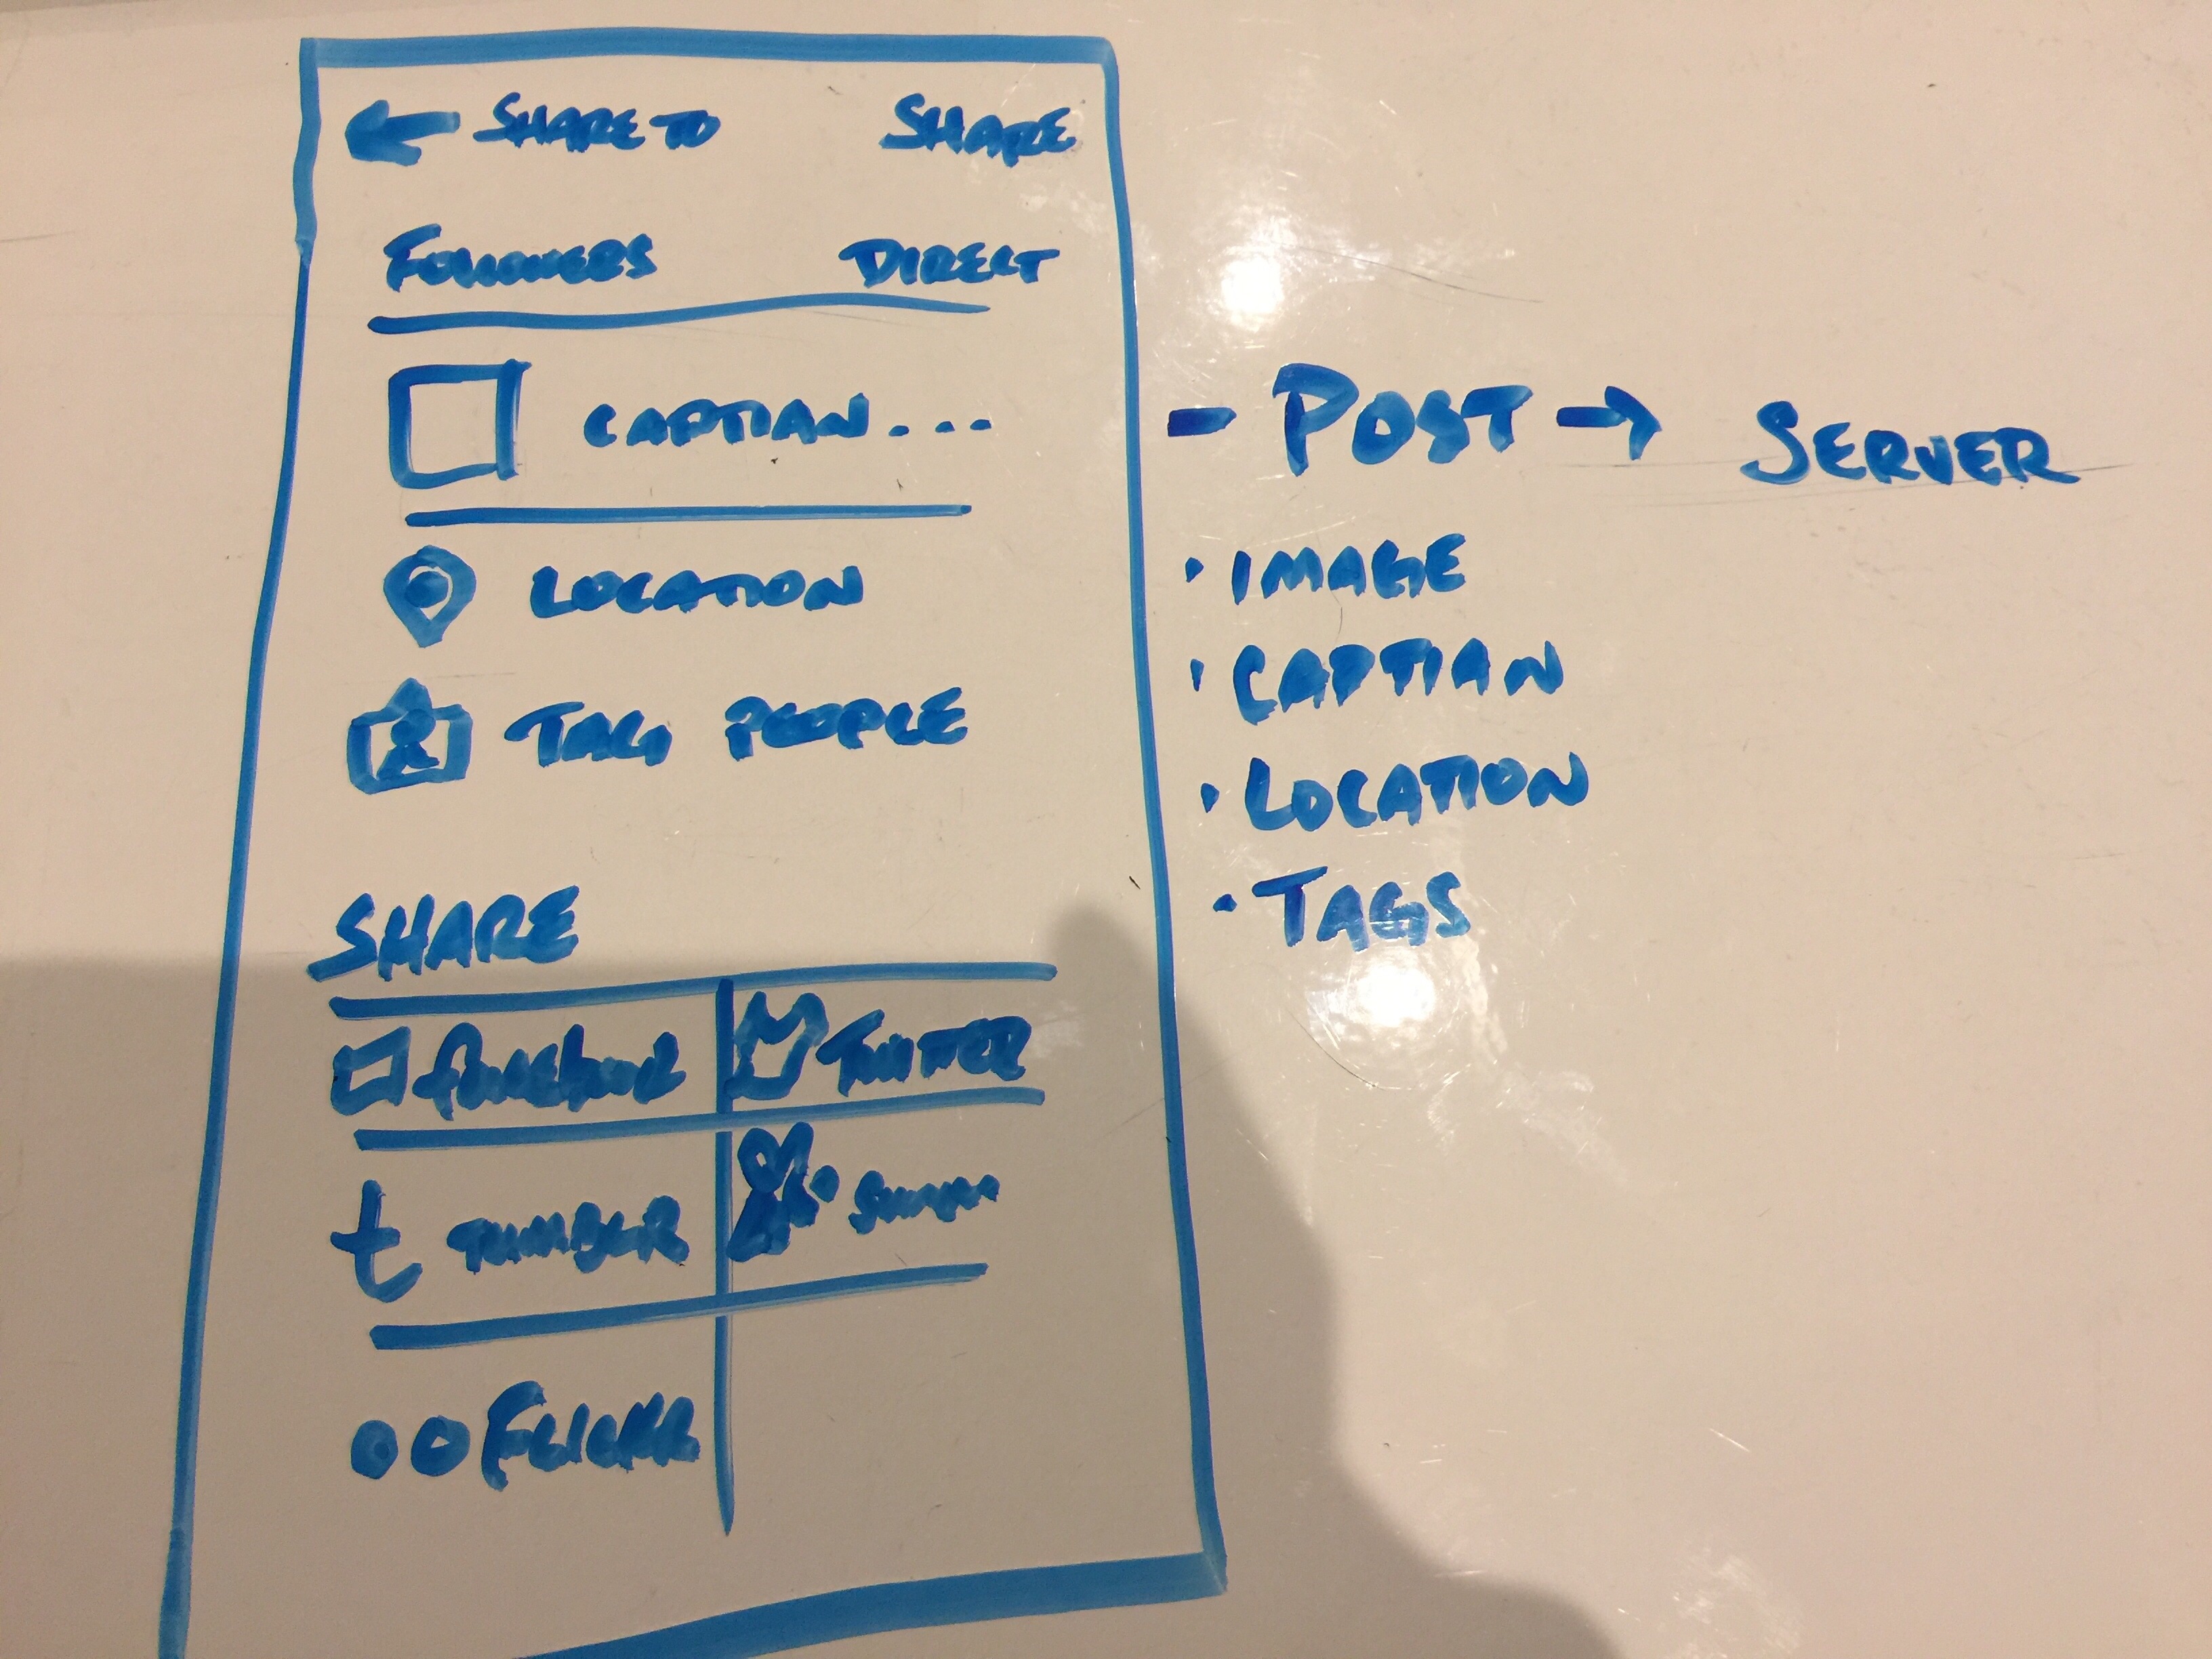 ← SHARE TO SHARE
FOLLOWERS DIRECT
CAPTIAN...
LOCATION
TAG PEOPLE
SHARE
TWITTER
t TUMBLR
FLICKR
- POST → SERVER
· IMAGE
· CAPTIAN
· LOCATION
· TAGS